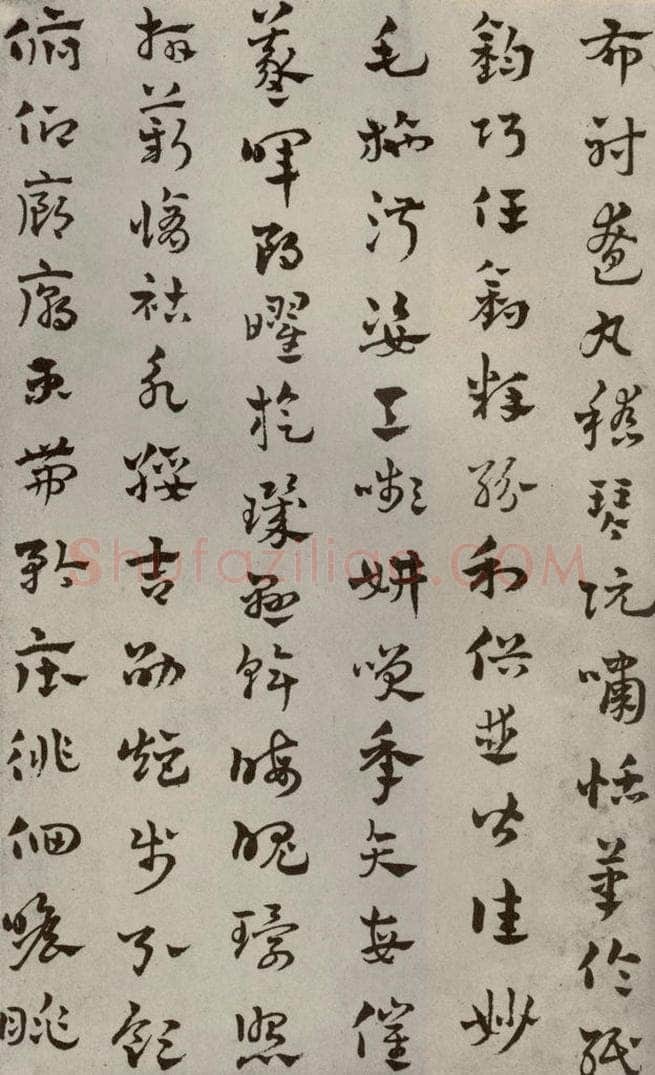 布射遼丸嵇琴阮嘯恬筆倫紙
鈞巧任釣釋紛利俗並皆佳妙
毛施淑姿工嚬妍笑年矢每催
羲暉朗曜旋璣懸斡晦魄環照
指薪脩祜永綏吉劭矩步引領
俯仰廊廟束帶矜莊徘徊瞻眺
Shufaziliao.COM